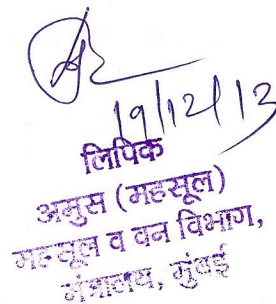 19/12/13
लिपिक
अमुस (महसूल)
महसूल व वन विभाग,
मंत्रालय, मुंबई